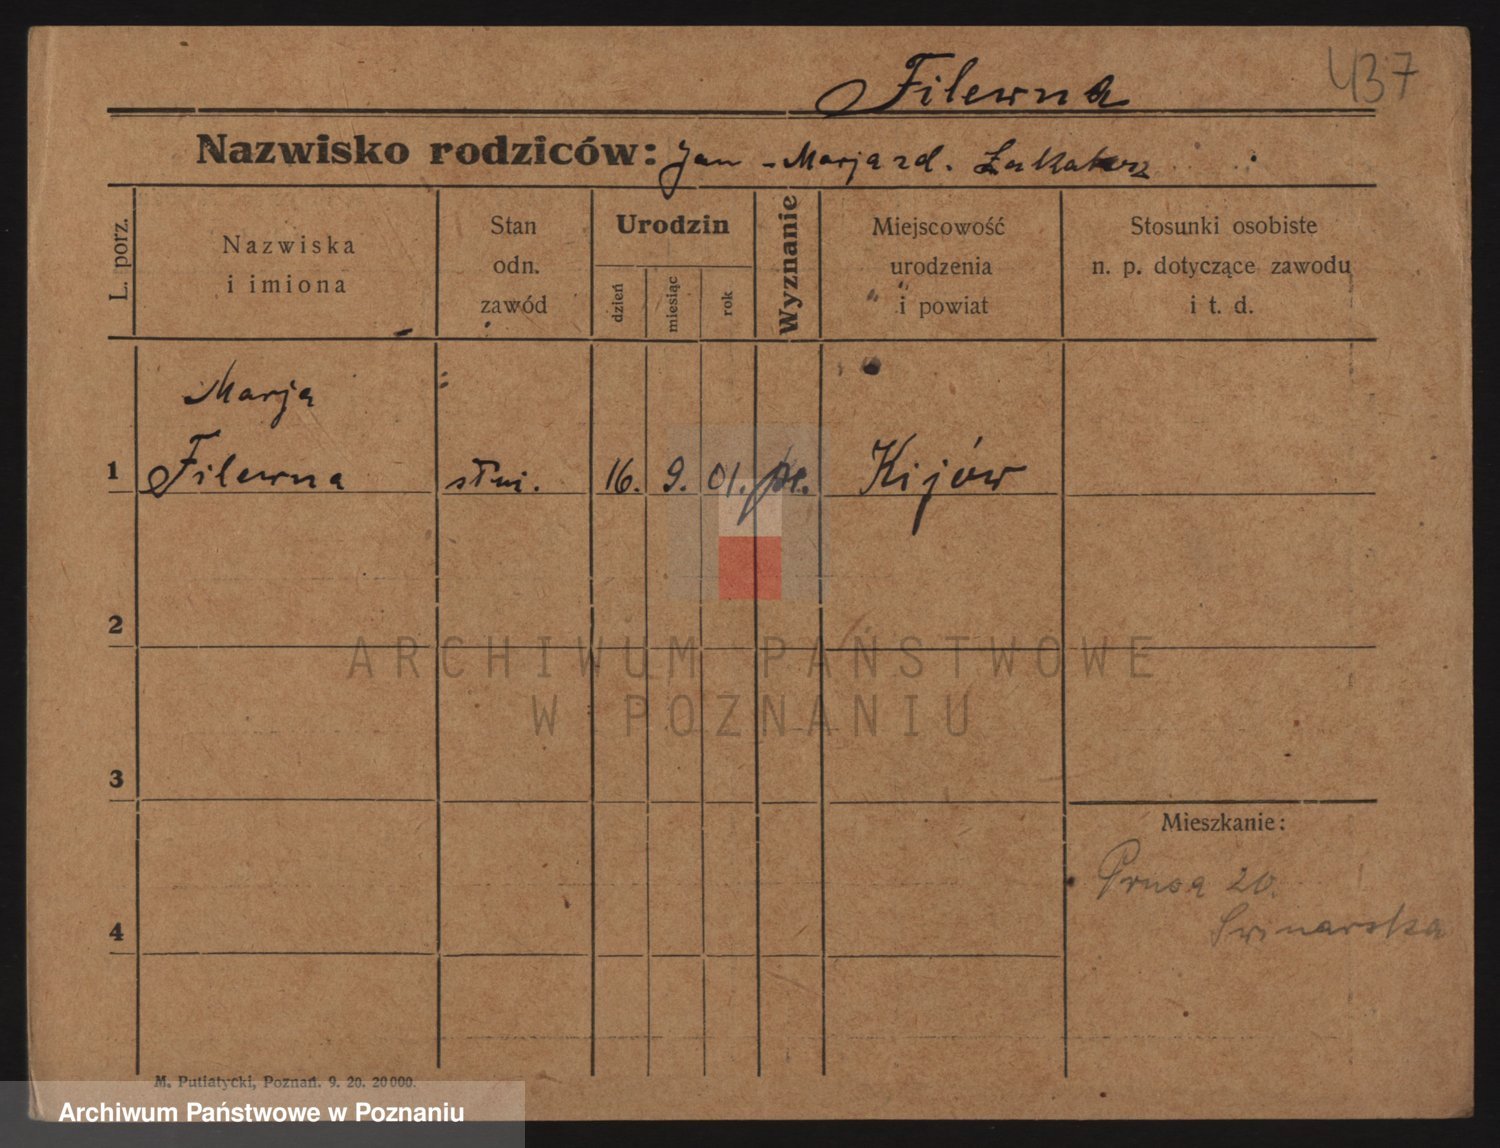 437
Filewna
Nazwisko rodziców: Jan - Marja zd.
L. porz.
Nazwiska
i imiona
Stan
odn.
zawód
Urodzin
dzień
miesiąc
rok
Wyznanie
Miejscowość
urodzenia
i powiat
Stosunki osobiste
n. p. dotyczące zawodu
i t. d.
Marja
1 Filewna służ. 16. 9. 01. Kijów
2
ARCHIWUM PAŃSTWOWE
W POZNANIU
3
Mieszkanie:
Prusa 20.
Swinarska
4
M. Putiatycki, Poznań. 9. 20. 20000.
Archiwum Państwowe w Poznaniu